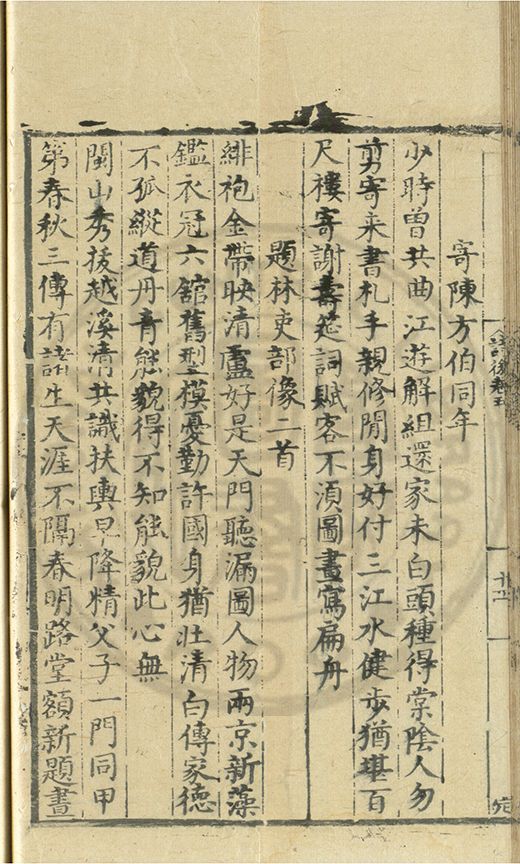 寄陳方伯同年
少時曾共曲江遊解組還家未白頭種得棠陰人勿
剪寄来書札手親修閒身好付三江水健步猶堪百
尺樓寄謝壽筵詞賦客不湏圖畫寫扁舟
題林吏部像二首
緋袍金帶映清臚好是天門聽漏圖人物兩京新藻
鑑衣冠六舘舊型模憂勤許國身猶壯清白傳家德
不孤縱道丹青能貌得不知能貌此心無
閩山秀拔越溪清共識扶輿早降精父子一門同甲
第春秋三傳有諸生天涯不隔春明路堂額新題晝
後卷五